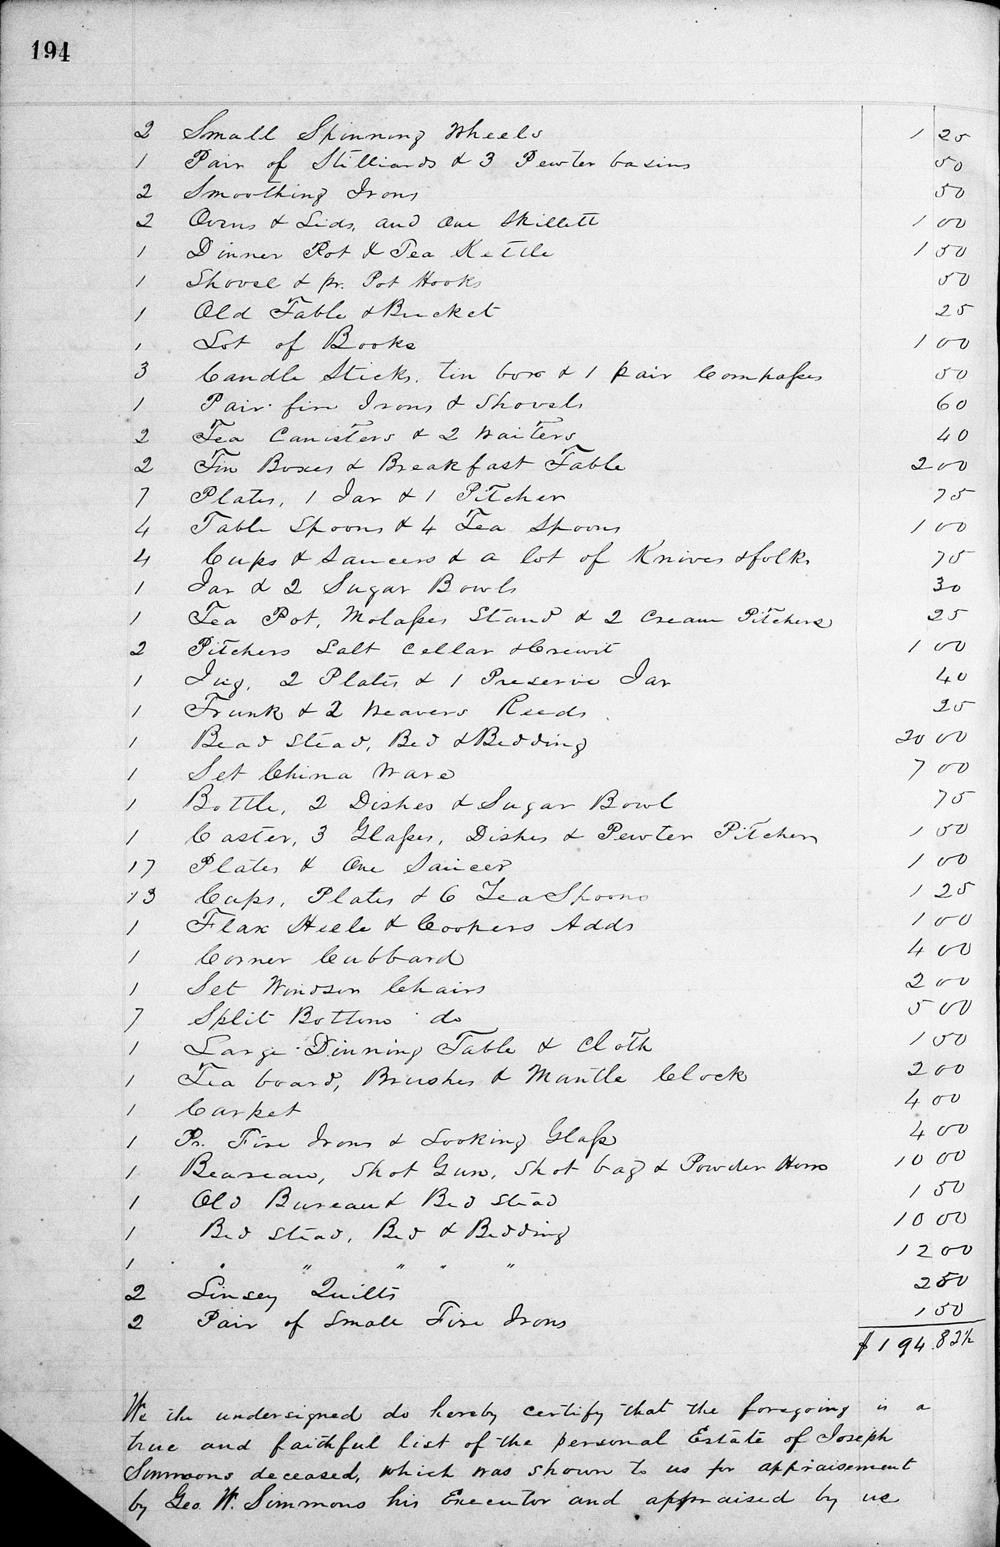 194
2 Small Spinning Wheels 1 25
1 Pair of Stilliards & 3 Pewter basins 50
2 Smoothing Irons 50
2 Ovens & Lids, and One Skillett 1 00
1 Dinner Pot & Tea Kettle 1 50
1 Shovel & pr. Pot Hooks 50
1 Old Table & Bucket 25
1 Lot of Books 1 00
3 Candle Sticks, tin box & 1 pair Compasses 50
1 Pair fire Irons & Shovels 60
2 Tea Canisters & 2 Waiters 40
2 Tin Boxes & Breakfast Table 2 00
7 Plates, 1 Jar & 1 Pitcher 75
4 Table Spoons & 4 Tea Spoons 1 00
4 Cups & Saucers & a lot of Knives & folks 75
1 Jar & 2 Sugar Bowls 30
1 Tea Pot, Molasses Stand & 2 Cream Pitchers 25
2 Pitchers Salt Cellar & Crewit 1 00
1 Jug, 2 Plates & 1 Preserve Jar 40
1 Trunk & 2 Weavers Reeds 25
1 Bead Stead, Bed & Bedding 20 00
1 Set China Ware 7 00
1 Bottle, 2 Dishes & Sugar Bowl 75
1 Caster, 3 Glasses, Dishes & Pewter Pitcher 1 50
17 Plates & One Saucer 1 00
13 Cups, Plates & 6 Tea Spoons 1 25
1 Flax Heele & Coopers Adds 1 00
1 Corner Cubbard 4 00
1 Set Windsor Chairs 2 00
7 Split Bottom do 5 00
1 Large Dinning Table & Cloth 1 50
1 Tea board, Brushes & Mantle Clock 2 00
1 Carpet 4 00
1 Pr. Fire Irons & Looking Glass 4 00
1 Beareau, Shot Gun, Shot bag & Powder Horn 10 00
1 Old Bureau & Bed Stead 1 50
1 Bed Stead, Bed & Bedding 10 00
1 " " " " " 12 00
2 Linsey Quilts 2 50
2 Pair of Small Fire Irons 1 50
$194.82½
We the undersigned do hereby certify that the foregoing is a
true and faithful list of the personal Estate of Joseph
Simmons deceased, which was shown to us for appraisement
by Geo. W. Simmons his Executor and appraised by us